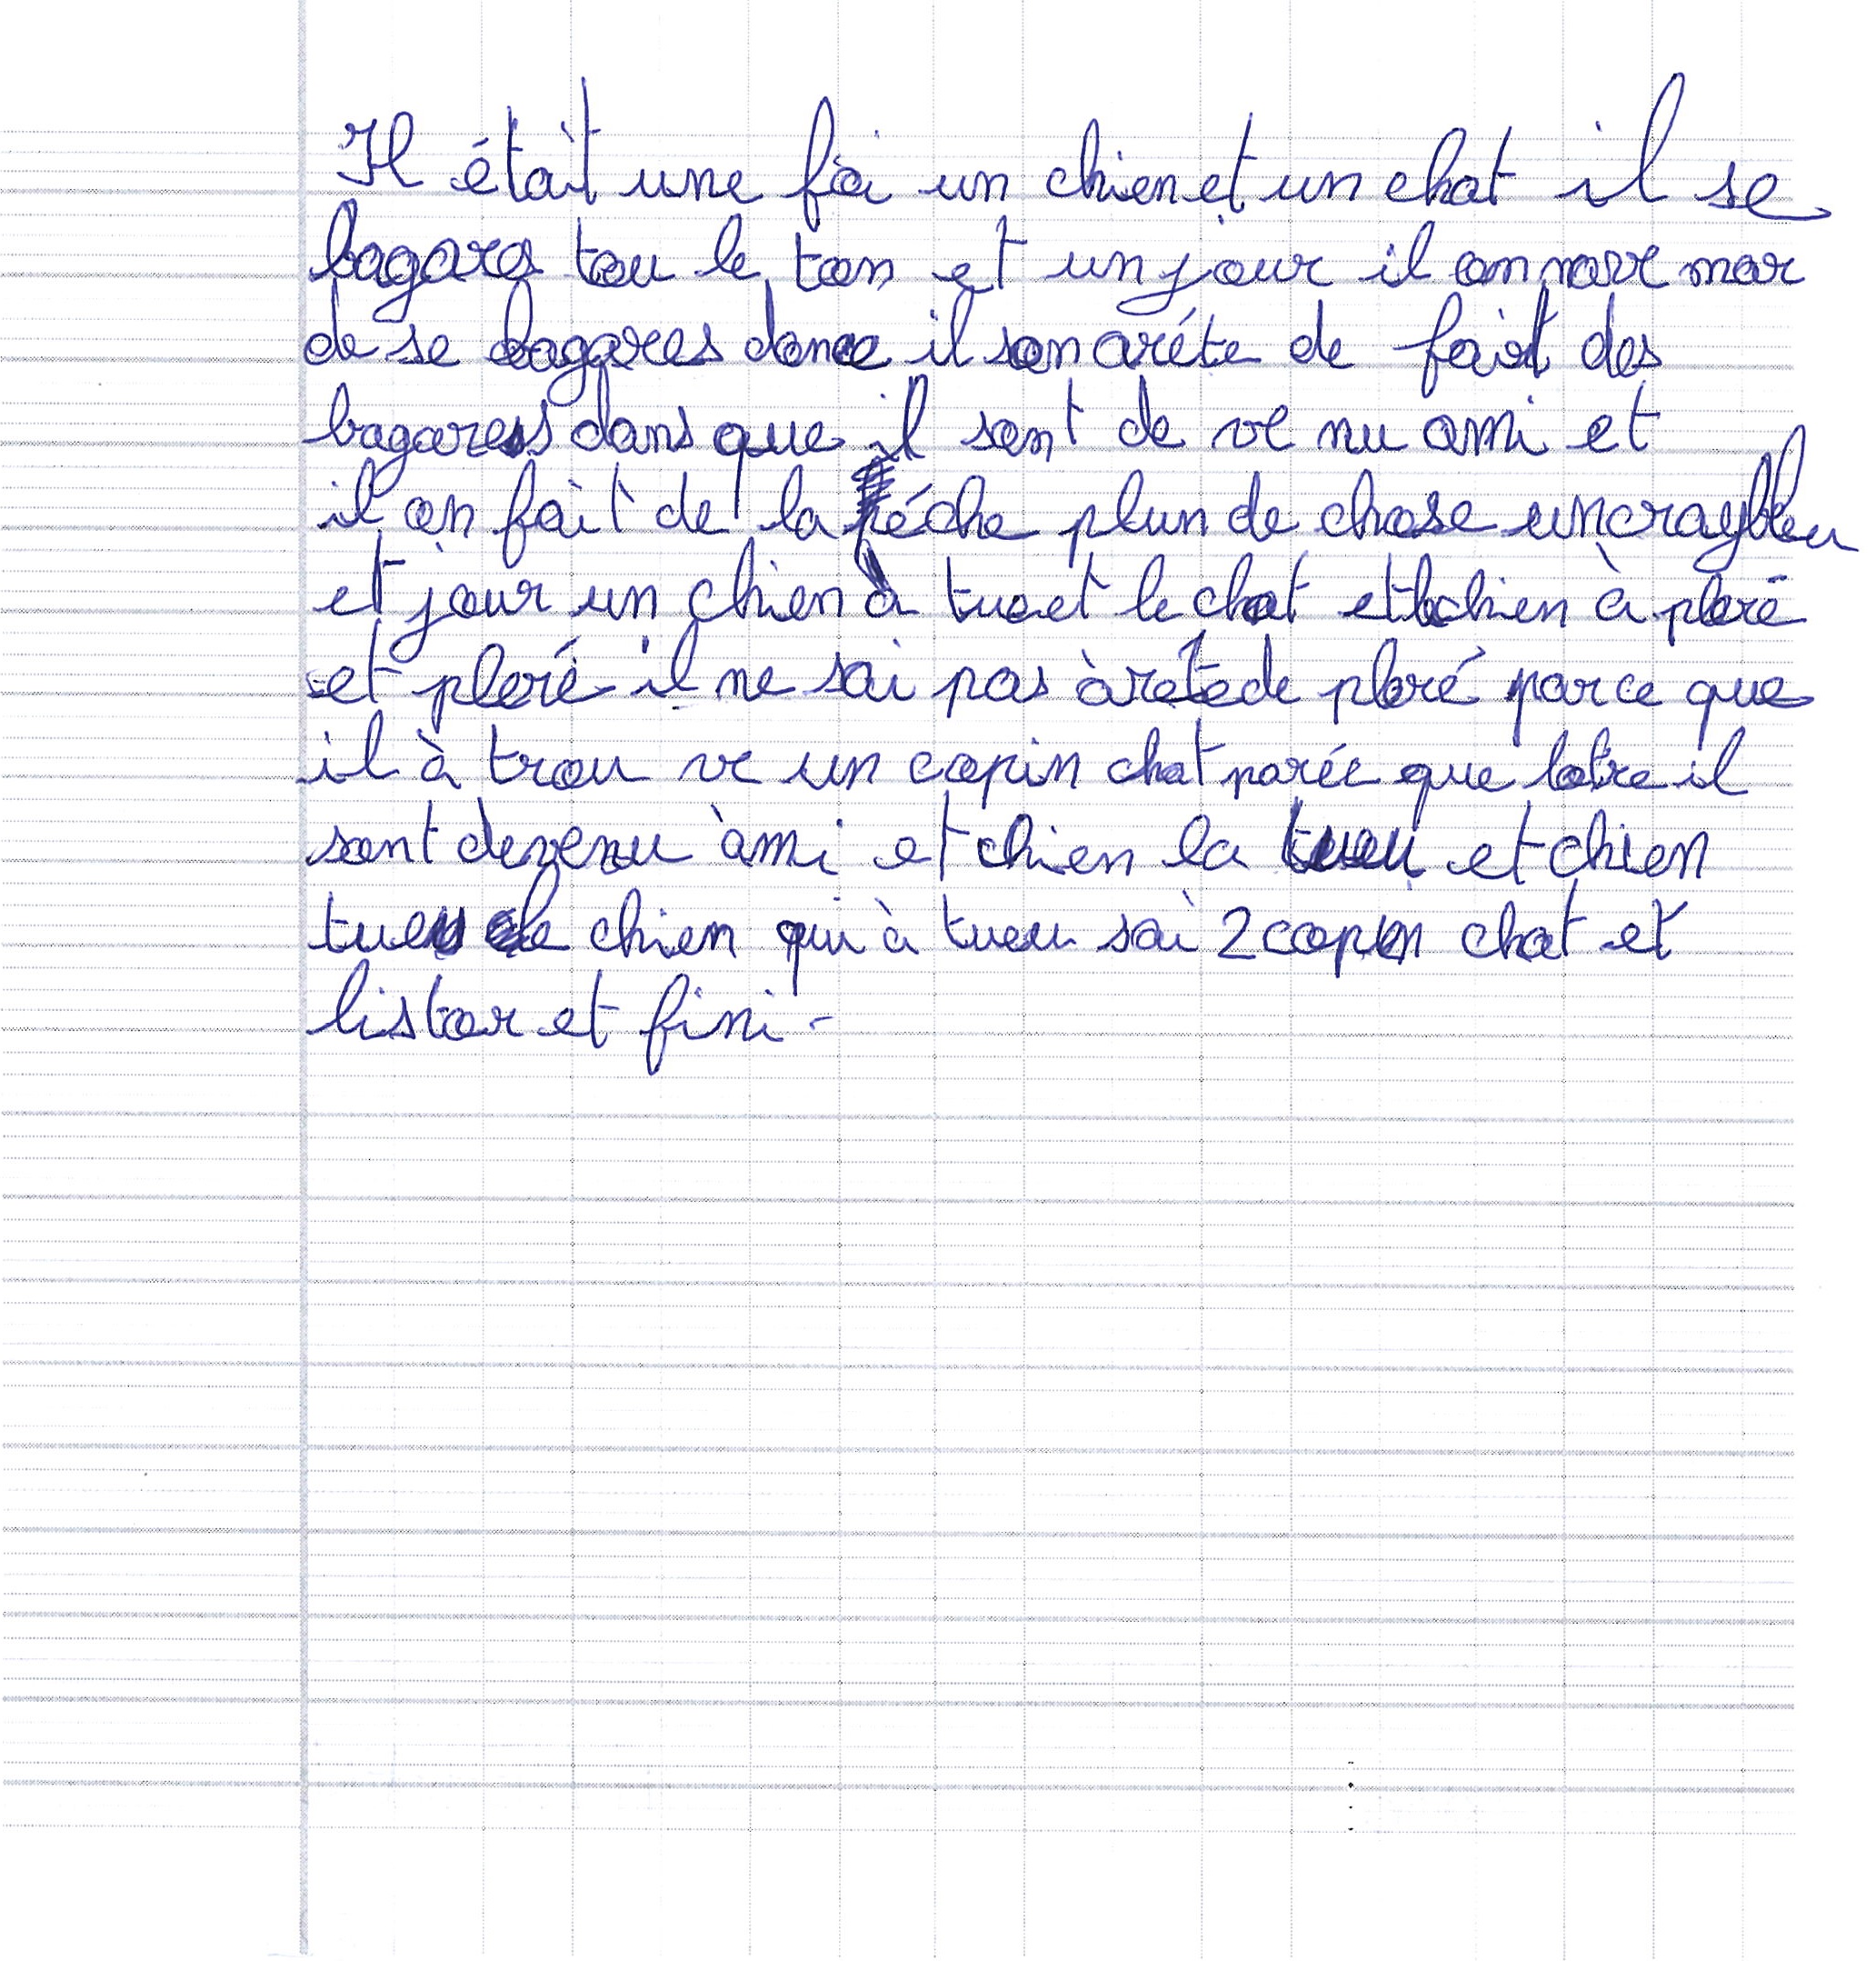 Il était une foi un chien et un chat il se
bagare tou le tan et un jour il on nare mar
de se bagares donce il son aréte de fairt des
bagares dans que il sont de ve nu ami et
il on fait de la péche plun de chose uncraybleu
et jour un chien à tuet le chat et le chien à pleré
et pleré il ne sai pas àrété de pleré parce que
il à trou ve un copin chat paréc que lotre il
sont devenu àmi et chien la tueu et chien
tueu le chien qui à tueu sai 2 copin chat et
listoer et fini -